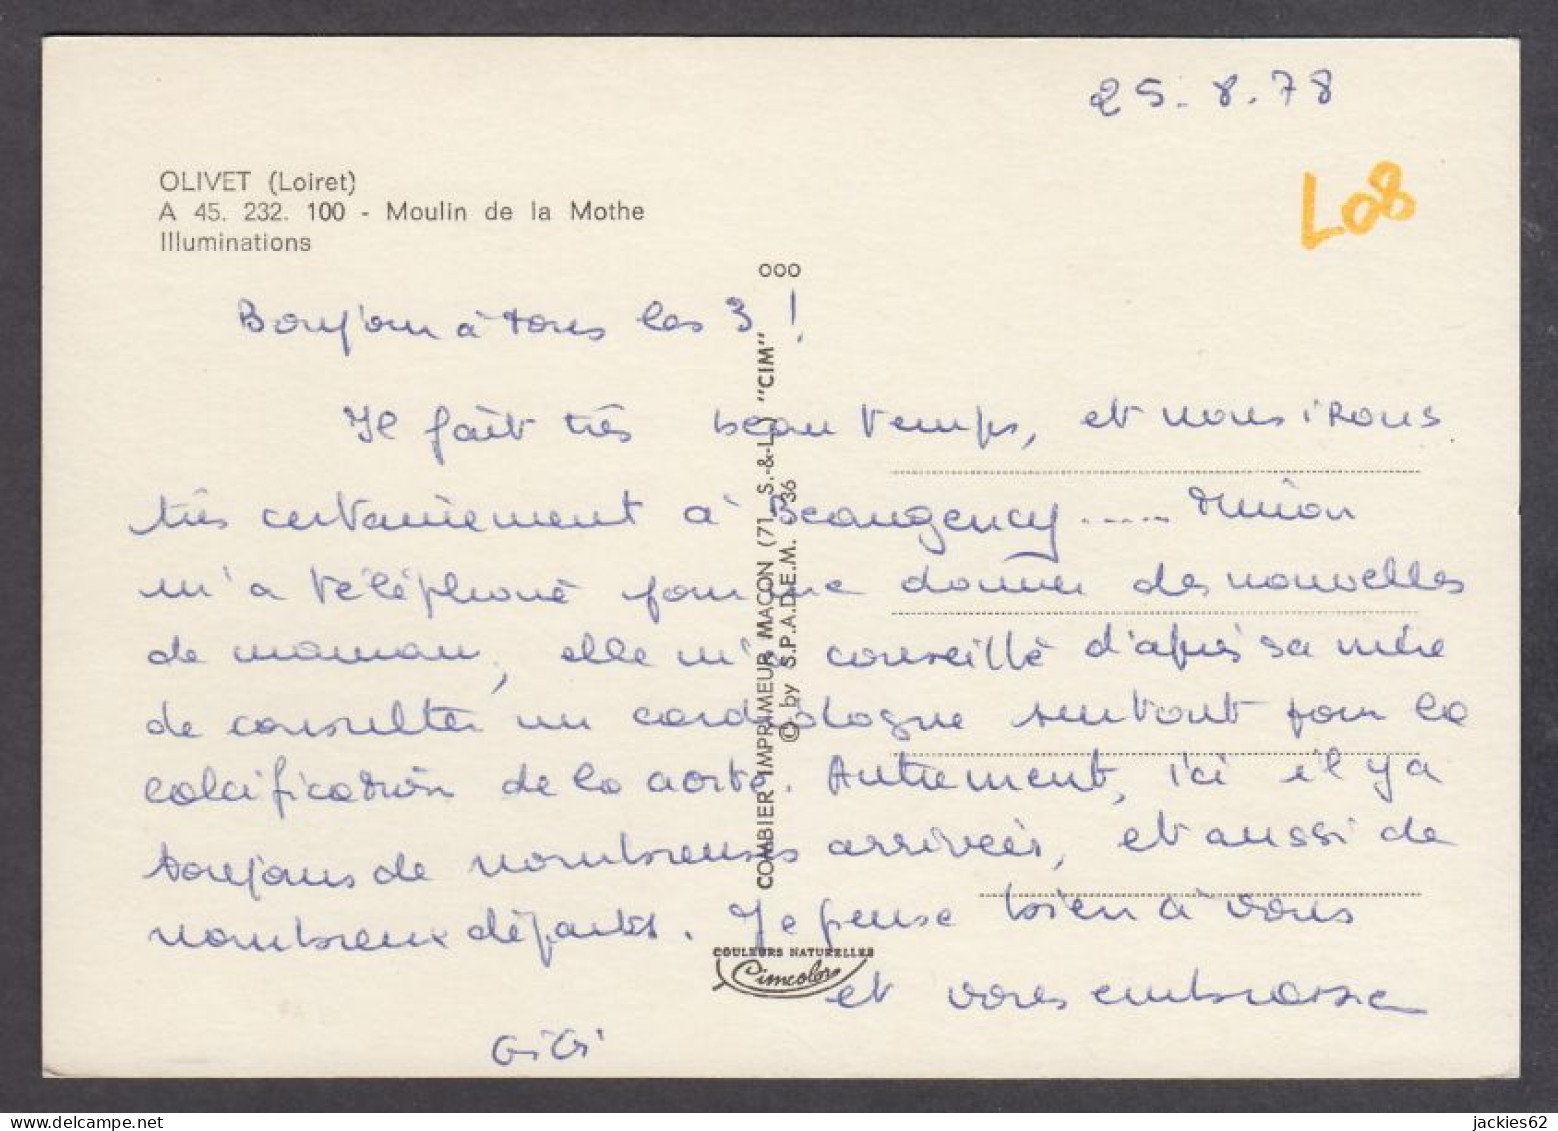 25.8.78
OLIVET (Loiret)
A 45. 232. 100 - Moulin de la Mothe
Illuminations
L08
000
Bonjour à tous les 3 !
Il fait très beau temps, et nous irons
très certainement à Beaugency .....
m'a téléphoné pour me donner des nouvelles
de maman, elle m'a conseillé d'après sa mère
de consulter un cardiologue surtout pour la
calcification de la aorte. Autrement, ici il y a
toujours de nombreuses arrivées, et aussi de
nombreux départs. Je pense bien à vous
et vous embrasse
GiGi
COMBIER IMPRIMEUR MACON (71 S.-&-L.) "CIM"
© by S.P.A.D.E.M. 36
COULEURS NATURELLES
Cimcolor
jackies62